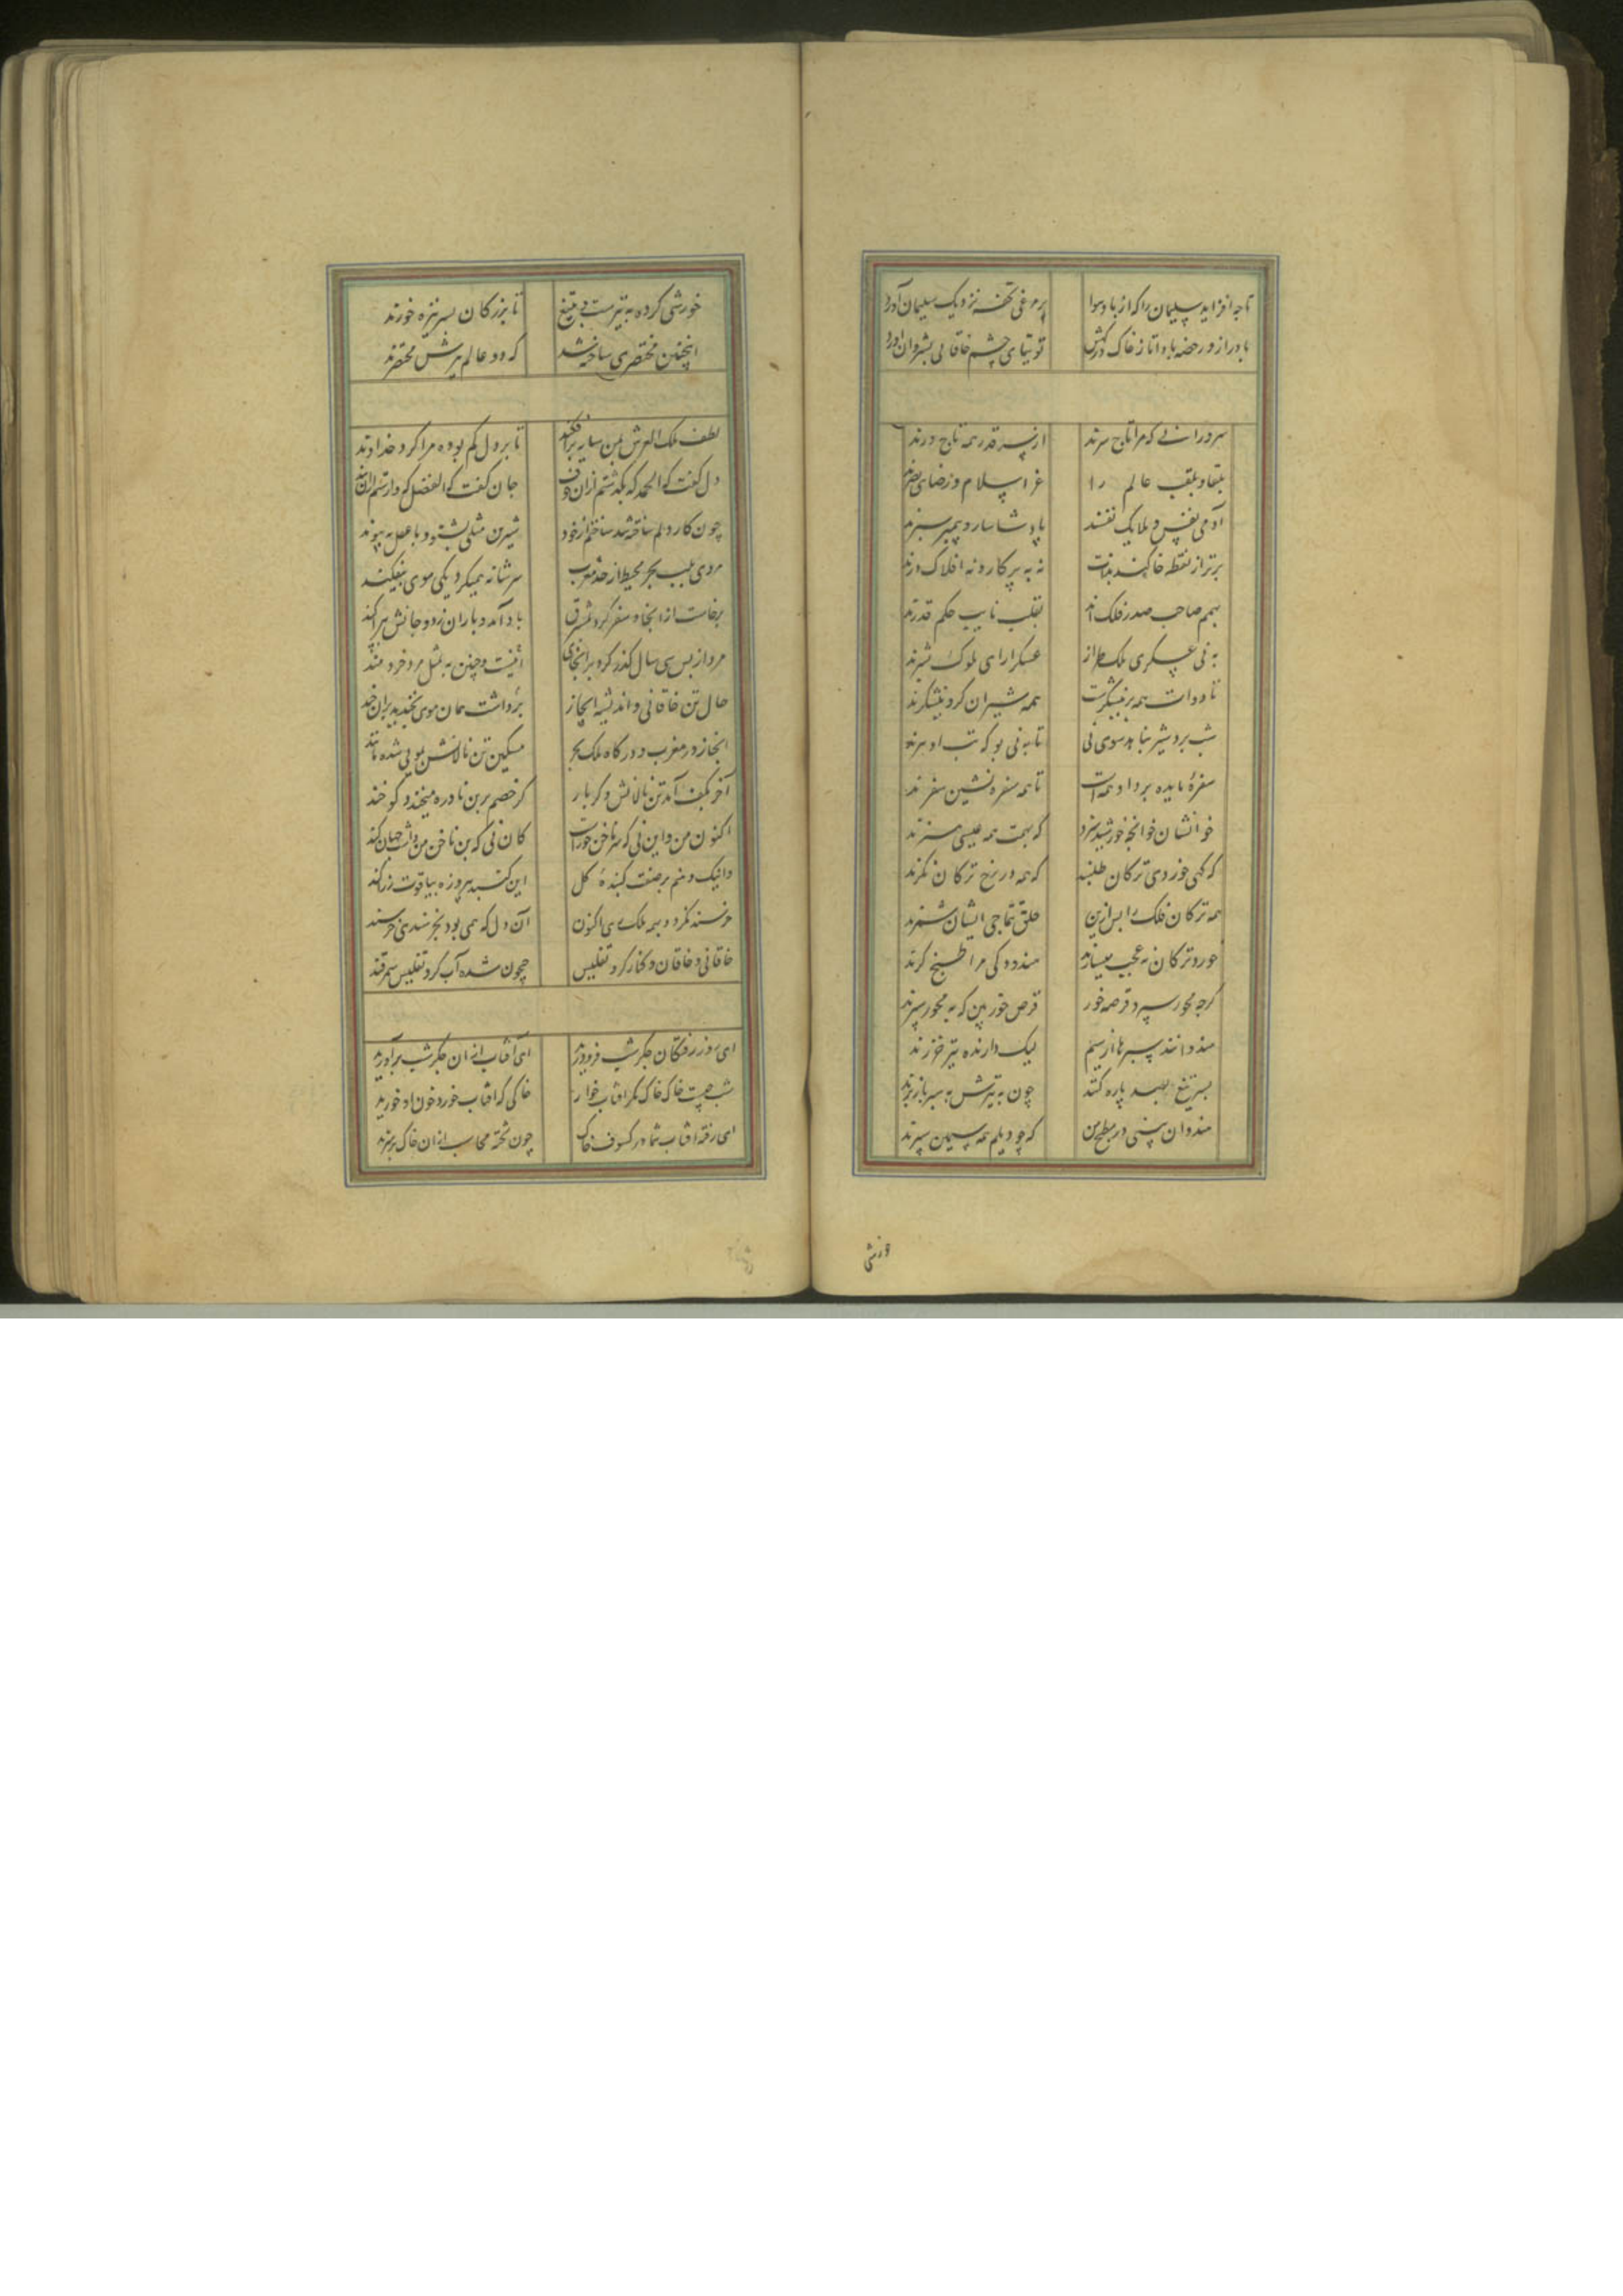 تا چه افزاید سلیمان را که از باد و هوا پر مرغی تحفه نزدیک سلیمان آورد
باد راز در رخصه باد اتا ز خاک درگهش توتیای چشم خاقانی بشروان آورد
سرورانی که مرا تاج سرند از سر قدر همه تاج درند
بلقا و بلقب عالم را عز اسلام و رضای بصرند
آدمی نفس و ملایک نفسند پادشا سار و پیمبر سیرند
برتر از نقطه خاکند بذات نه به پرکار و نه افلاک درند
بهمم صاحب صدر فلک اند بقلب نایب حکم قدرند
به نی عسکری ملک طراز عسکرارای ملوک بشرند
تا دوات همه پر نیشکرست همه شیران کرو نیشکرند
شب برد شیر نباهد سوی نی تا به نی بو که تب او ببرند
سفره مایده بردا دهمه است تا همه سفره نشین سفرند
خوانشان خوانچه خورشید سزد که بهمت همه عیسی هنرند
که کهی خوردی ترکان طلبند که همه در رخ ترکان نگرند
همه ترکان فلک را پس ازین خلق تتماجی ایشان شمرند
خورد ترکان نه عجب میسازند هندوکی مرا طبخ گرند
گرچه محور سپرد قرصه خور قرص خور بین که به محور سپرند
هندوانند سپرها از سیم لیک دارنده تیر خزرند
بسر تیغ بصد پاره کنند چون به تیرش به سپر باز برند
هندوان بینی در مطبخ من که چو دیلم همه سیمین سپرند
خورشی
خورشی کرده به تیرست و بتیغ تا بزرکان بسر نیزه خورند
اینچنین مختصری ساخته شد که دو عالم برش مختصرند
لطف ملک العرش بمن سایه برافکند تا بر دل کم بوده مرا کرد خداوند
دل گفت که الحمد که بگذشتم ازان خوف جان گفت که الفضل که وارستم ازان بند
چون کار دلم ساخته شد ساختم از خود شیرین مثلی بشنو و با عقل به پیوند
مردی به لب بحر محیط از حد مغرب سر شانه همیکرد یکی موی بیفکند
برخاست از انجا و سفر کرد بمشرق باد آمد و باران زد و جانش بپراکند
مرد از پس سی سال گذر کرد بر انجای برداشت همان موی بخندید بران خند
حال تن خاقانی و اندیشه ابخاز اینست و چنین به مثل مرد خردمند
ابخاز در مغرب و درگاه ملک بحر مسکین تن نالانش بمویی شده مانند
آخر بکف آمد تن نالانش دگر بار گر خصم برین نادره میخندد گو خند
اکنون من و این نی که سر ناخن حوراست کان نی که بن ناخن من داشت جهان کند
دانیک و منم بر صفت گنبده گل این گنبد پیروزه بیاقوت و زر آکند
خرسند نگردد به همه ملک ری اکنون آن دل که همی بود بخرسندی خرسند
خاقانی و خاقان و کنار کر و تفلیس جیحون شده آب کر و تفلیس سمرقند
ای روز رفتکان جگر شب فرو درید ای آفتاب ازان جگر شب برآورید
شب چیست خاک خاک نگر آفتاب خوار خاکی که آفتاب خورد خون او خورید
ای رفته آفتاب شما در کسوف خاک چون تخته محاسب ازان خاک برسرید